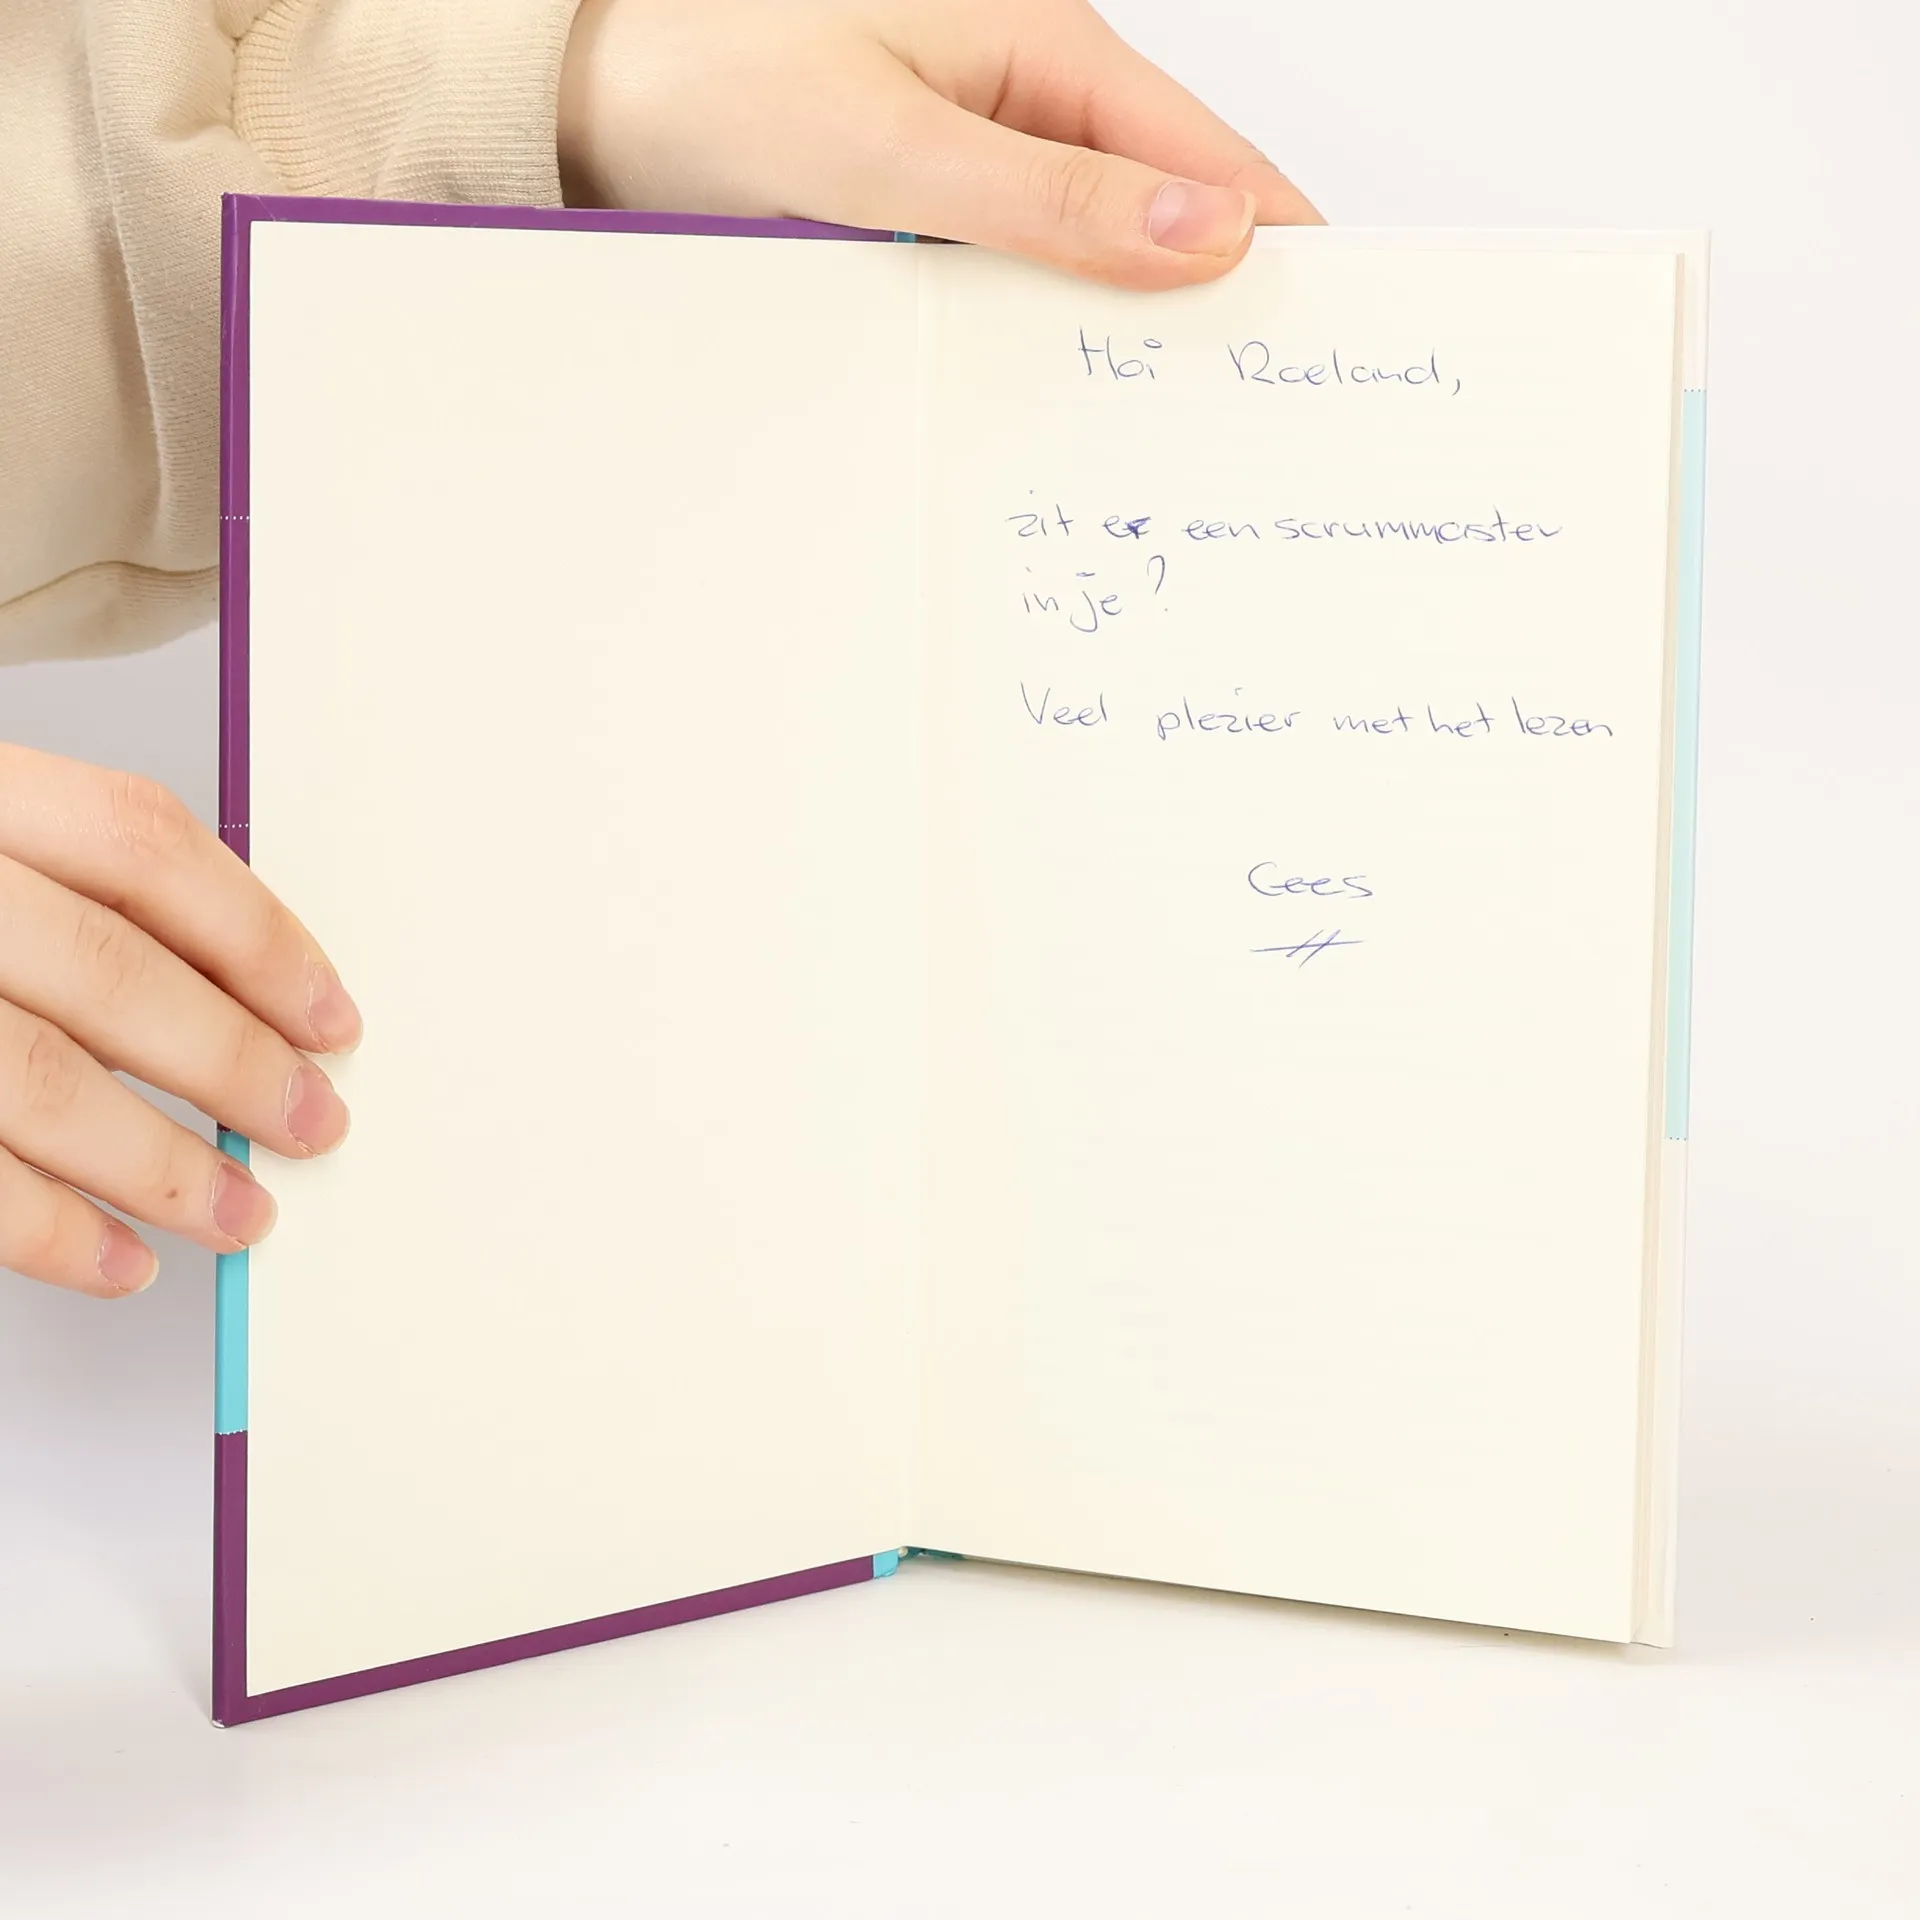 Hoi Roeland,
zit er een scrummaster
in je?
Veel plezier met het lezen
Cees